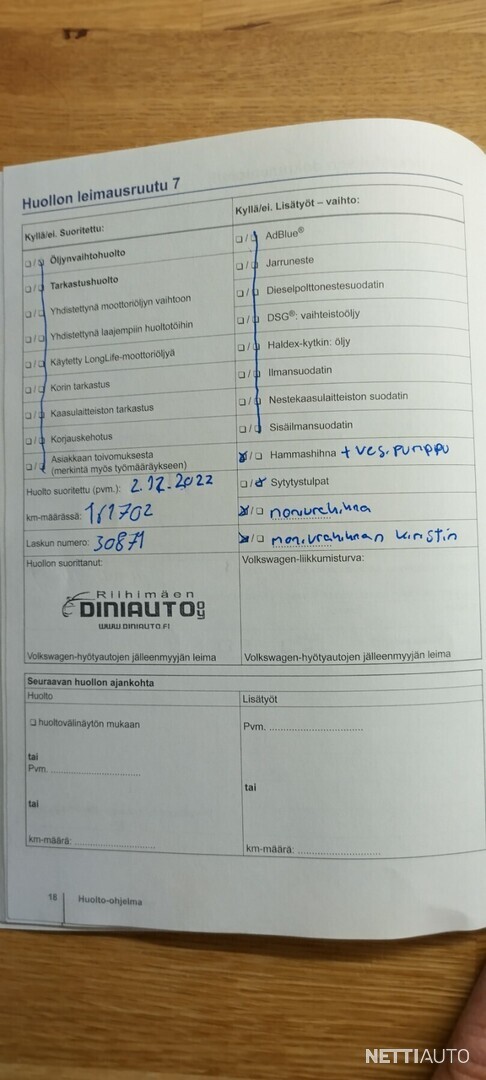 Huollon leimausruutu 7
Kyllä/ei. Suoritettu:
❑ / ❑ Öljynvaihtohuolto
❑ / ❑ Tarkastushuolto
❑ / ❑ Yhdistettynä moottoriöljyn vaihtoon
❑ / ❑ Yhdistettynä laajempiin huoltotöihin
❑ / ❑ Käytetty LongLife-moottoriöljyä
❑ / ❑ Korin tarkastus
❑ / ❑ Kaasulaitteiston tarkastus
❑ / ❑ Korjauskehotus
❑ / ❑ Asiakkaan toivomuksesta
(merkintä myös työmääräykseen)
Huolto suoritettu (pvm.): 2.12.2022
km-määrässä: 161702
Laskun numero: 30871
Huollon suorittanut:
Riihimäen
DINIAUTO OY
WWW.DINIAUTO.FI
Volkswagen-hyötyautojen jälleenmyyjän leima
Kyllä/ei. Lisätyöt – vaihto:
❑ / ❑ AdBlue®
❑ / ❑ Jarruneste
❑ / ❑ Dieselpolttonestesuodatin
❑ / ❑ DSG®: vaihteistoöljy
❑ / ❑ Haldex-kytkin: öljy
❑ / ❑ Ilmansuodatin
❑ / ❑ Nestekaasulaitteiston suodatin
❑ / ❑ Sisäilmansuodatin
❑ / ❑ Hammashihna + ves.pumppu
❑ / ❑ Sytytystulpat
❑ / ❑ moniurahihna
❑ / ❑ moniurahihnan kiristin
Volkswagen-liikkumisturva:
Volkswagen-hyötyautojen jälleenmyyjän leima
Seuraavan huollon ajankohta
Huolto
❑ huoltovälinäytön mukaan
tai
Pvm.
tai
km-määrä:
Lisätyöt
Pvm.
tai
km-määrä:
18 Huolto-ohjelma
NETTIAUTO